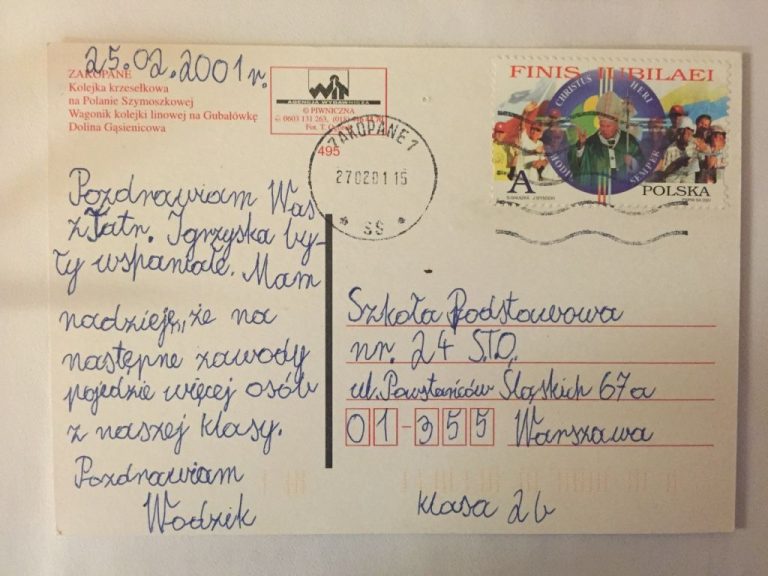 25.02.2001 r.
ZAKOPANE
Kolejka krzesełkowa
na Polanie Szymoszkowej
Wagonik kolejki linowej na Gubałówkę
Dolina Gąsienicowa
WiT
AGENCJA WYDAWNICZA
© PIWNICZNA
Fot. T.
495
ZAKOPANE 1
270201 15
* SS *
FINIS IUBILAEI
CHRISTUS HERI
HODIE SEMPER
A
POLSKA
Pozdrawiam Was
z Tatr. Igrzyska by-
ły wspaniałe. Mam
nadzieję, że na
następne zawody
pojedzie więcej osób
z naszej klasy.
Pozdrawiam
Wodzik
Szkoła Podstawowa
nr. 24 S.T.O.
ul. Powstańców Śląskich 67a
01-355 Warszawa
klasa 2b